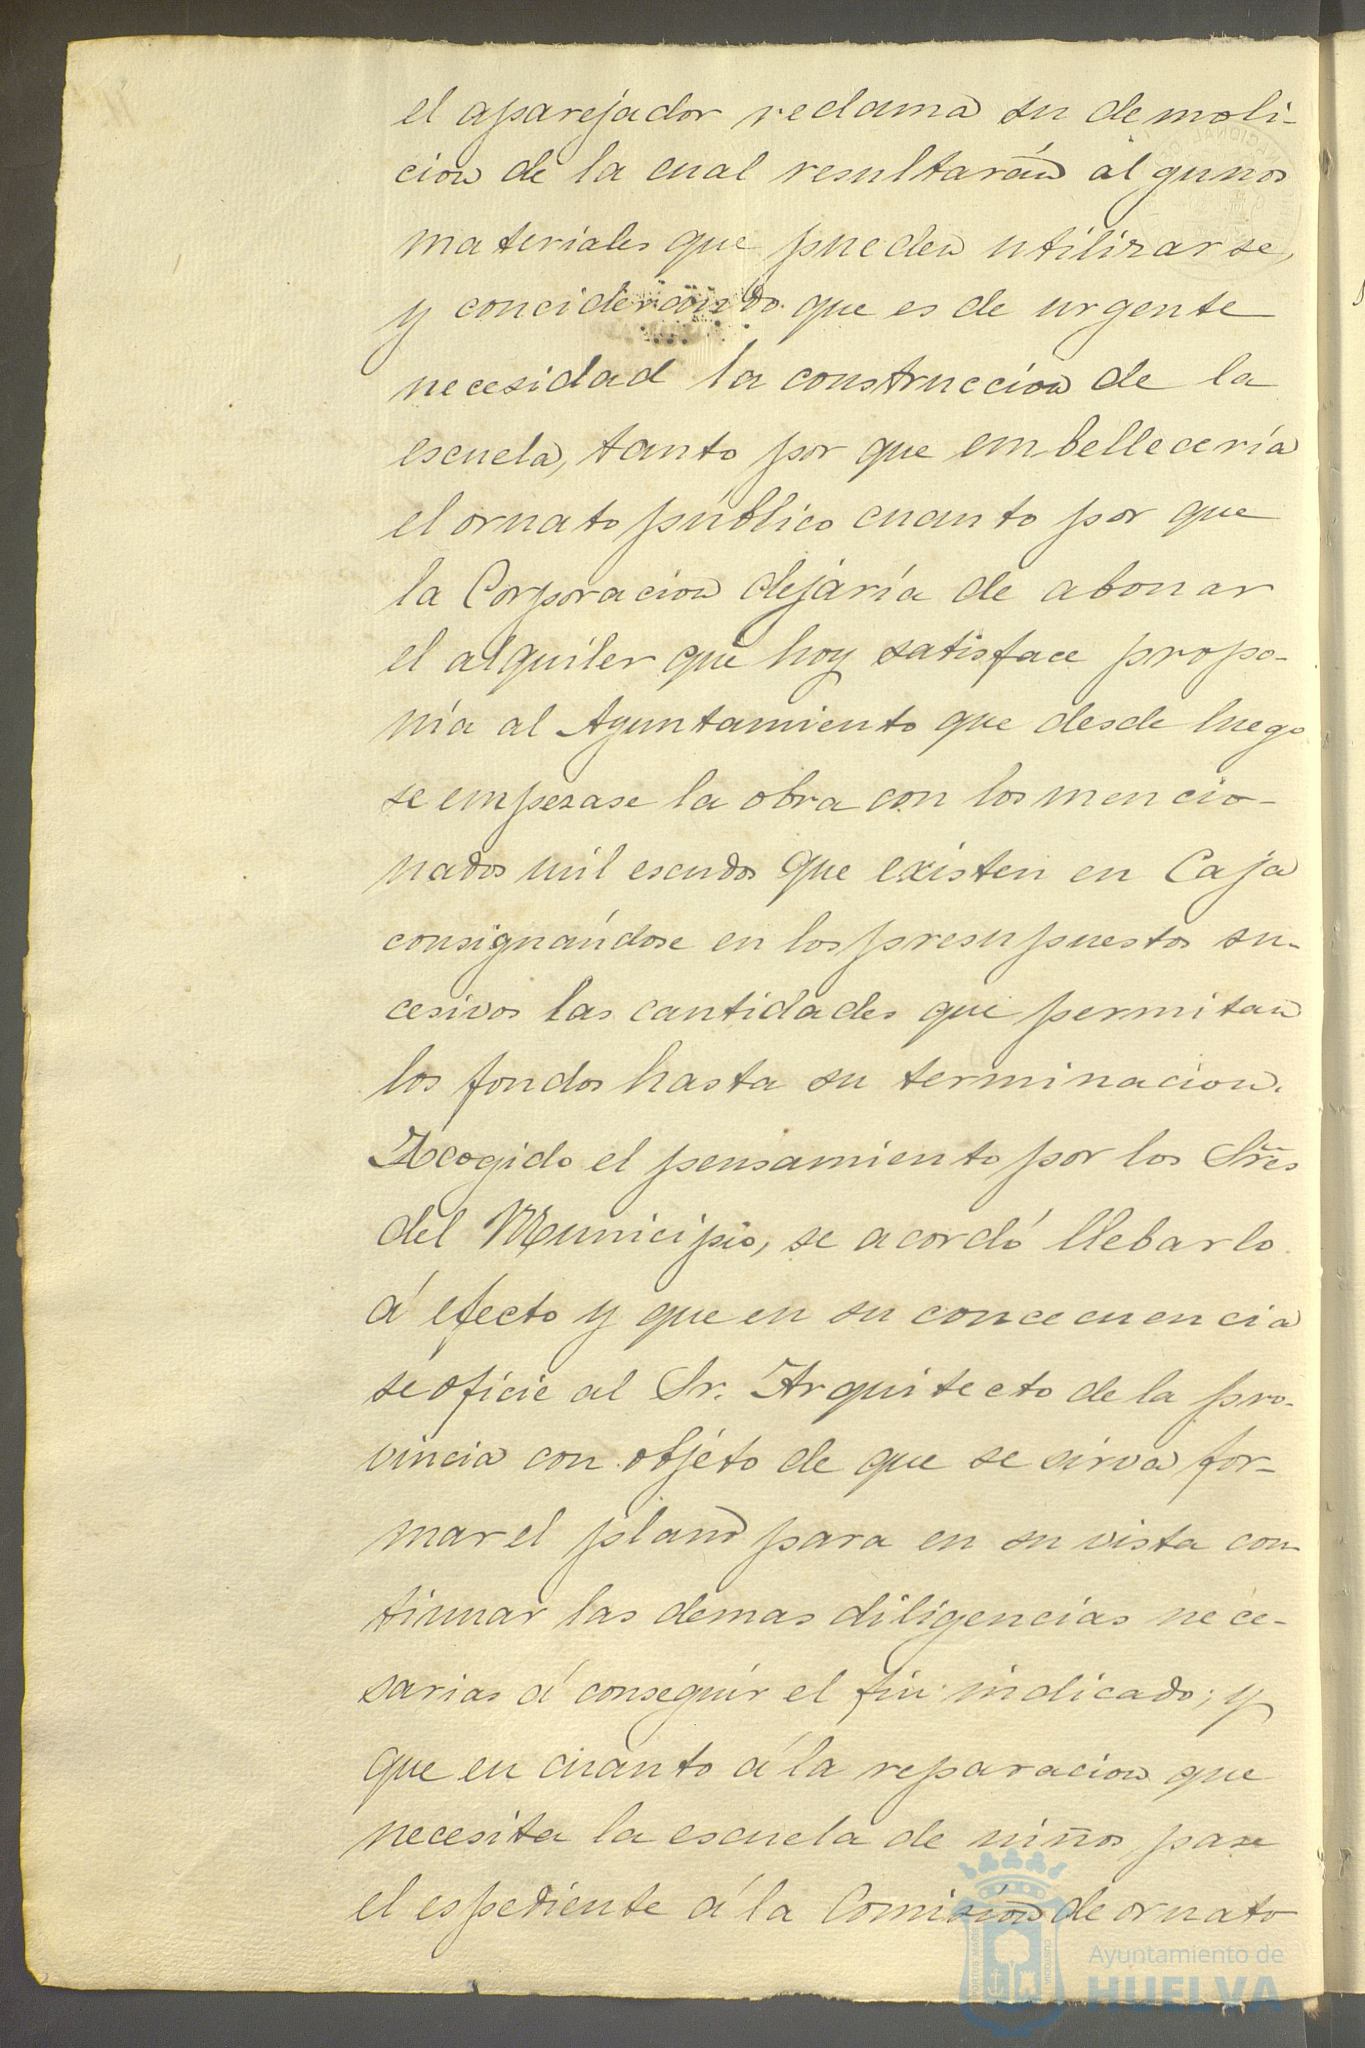 el aparejador reclama su demoli-
cion de la cual resultarán algunos
materiales que pueden utilizarse,
y conciderando que es de urgente
necesidad la construccion de la
escuela, tanto por que embellecería
el ornato público cuanto por que
la Corporacion dejaría de abonar
el alquiler que hoy satisface propo-
nía al Ayuntamiento que desde luego
se empezase la obra con los mencio-
nados mil escudos que existen en Caja
consignándose en los presupuestos su-
cesivos las cantidades que permitan
los fondos hasta su terminacion.
Acogido el pensamiento por los Sres
del Municipio, se acordó llebarlo
á efecto y que en su concecuencia
se oficie al Sr. Arquitecto de la pro-
vincia con objéto de que se sirva for-
mar el plano para en su vista con
tinuar las demas diligencias nece-
sarias á conseguir el fin indicado; y
que en cuanto á la reparacion que
necesita la escuela de niños pase
el espediente á la Comisión de ornato
Ayuntamiento de
HUELVA